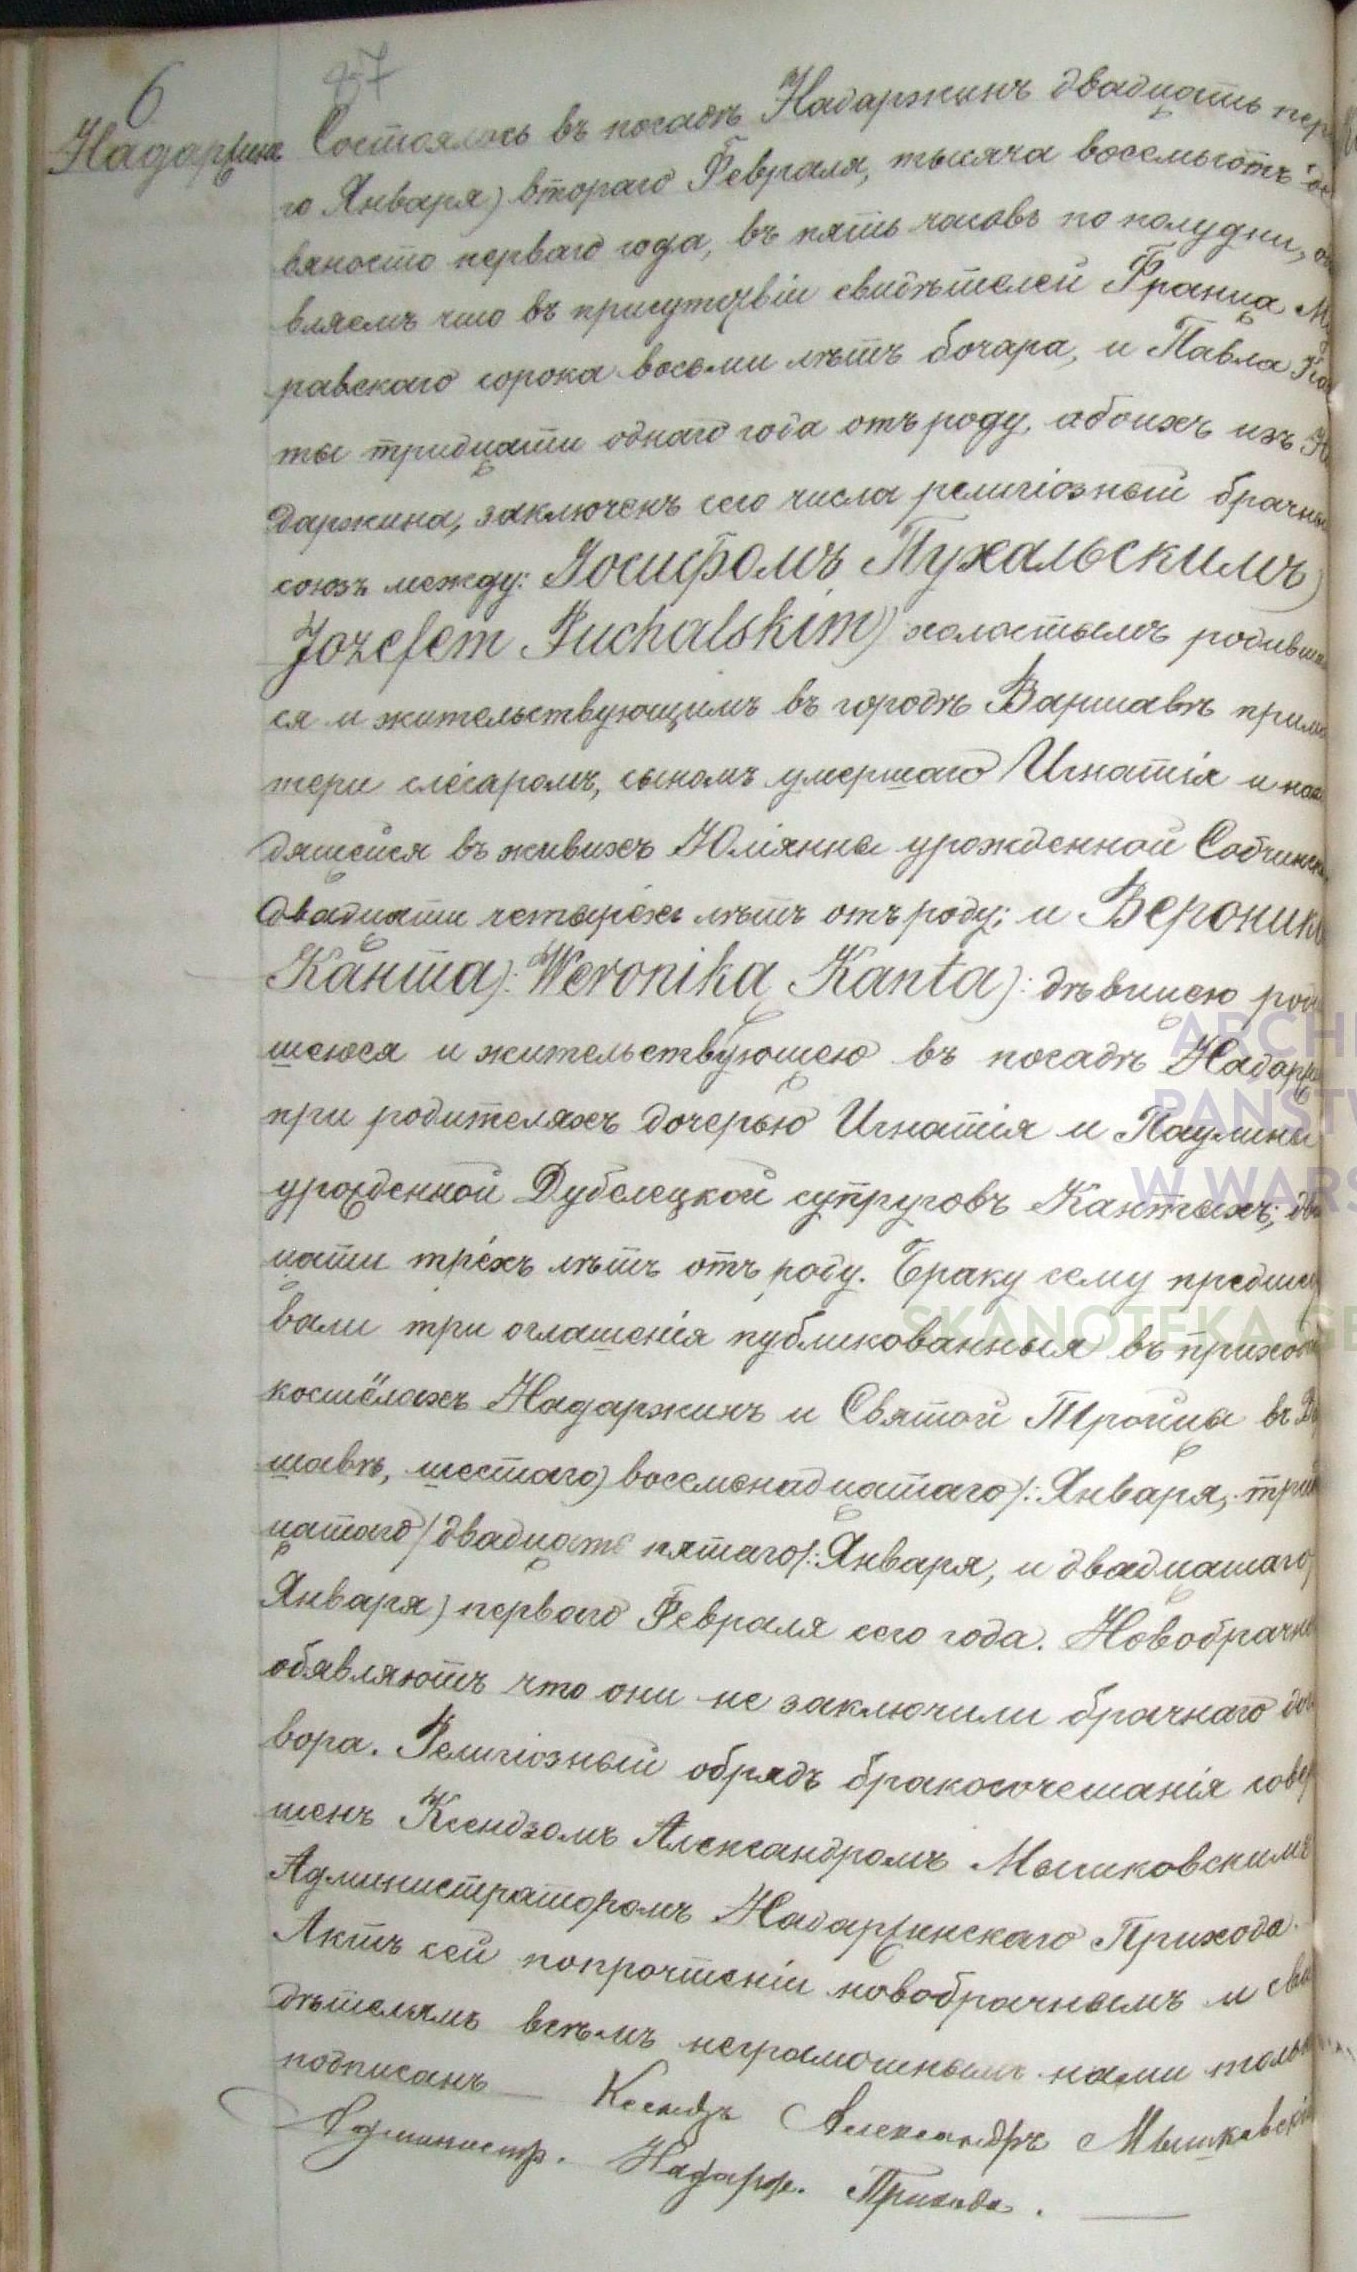 6
Надаржинъ
Состоялось въ посадѣ Надаржинѣ двадцать пер
го Января) втораго Февраля, тысяча восемьсотъ де
вяносто перваго года, въ пять часовъ по полудни, об
вляемъ что въ присутствіи свидѣтелей Франца М
равскаго сорока восьми лѣтъ бочара, и Павла Кан
ты тридцати однаго года отъ роду, обоихъ изъ На
даржина, заключенъ сего числа религіозный брачны
союзъ между: Іосифомъ Пухальскимъ)
Jozefem Puchalskim) холостымъ родивши
ся и жительствующимъ въ городѣ Варшавѣ при ма
тери слесаромъ, сыномъ умершаго Игнатія и нахо
дящейся въ живихъ Юліянны урожденной Собчинск
двадцати четырёхъ лѣтъ отъ роду; и Вероник
Канта): Weronika Kanta): дѣвицею роди
шеюся и жительствующею въ посадѣ Надарж
при родителяхъ дочерью Игнатія и Паулины
урожденной Дубелецкой супруговъ Кантыхъ; два
цати трёхъ лѣтъ отъ роду. Браку сему предше
вали три оглашенія публикованныя въ приход
костёлахъ Надаржинѣ и Святой Троицы въ Ва
шавѣ, шестаго) восемьнадцатаго/: Января, трин
цатаго/двадцать пятаго/: Января, и двадцатаго
Января) перваго Февраля сего года. Новобрачн
обявляютъ что они не заключили брачнаго дог
вора. Религіозный обрядъ бракосочетанія совер
шенъ Ксендзомъ Александромъ Мышковскимъ
Администраторомъ Надаржинскаго Прихода.
Актъ сей попрочтеніи новобрачнымъ и сви
дѣтелямъ всѣмъ неграмотнымъ нами тольк
подписанъ — Ксендзъ Александръ Мышковскій
Администр. Надарж. Прихода.
ARCHI
PAŃSTW
W WARS
SKANOTEKA.GE